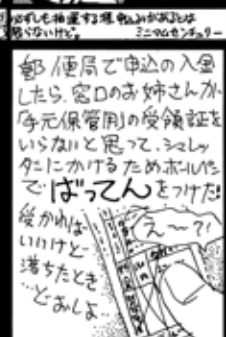 必ずしも抽選する程申込みがあるとは
限らないけど。
ミニマムセンチュリー
郵便局で申込の入金
したら、窓口のお姉さんが
「手元保管用」の受領証を
いらないと思って、シュレッ
ダーにかけるためボールペン
で ばってん をつけた!
え〜?!
受かれば
いいけど…
落ちたとき
…どおしよ…